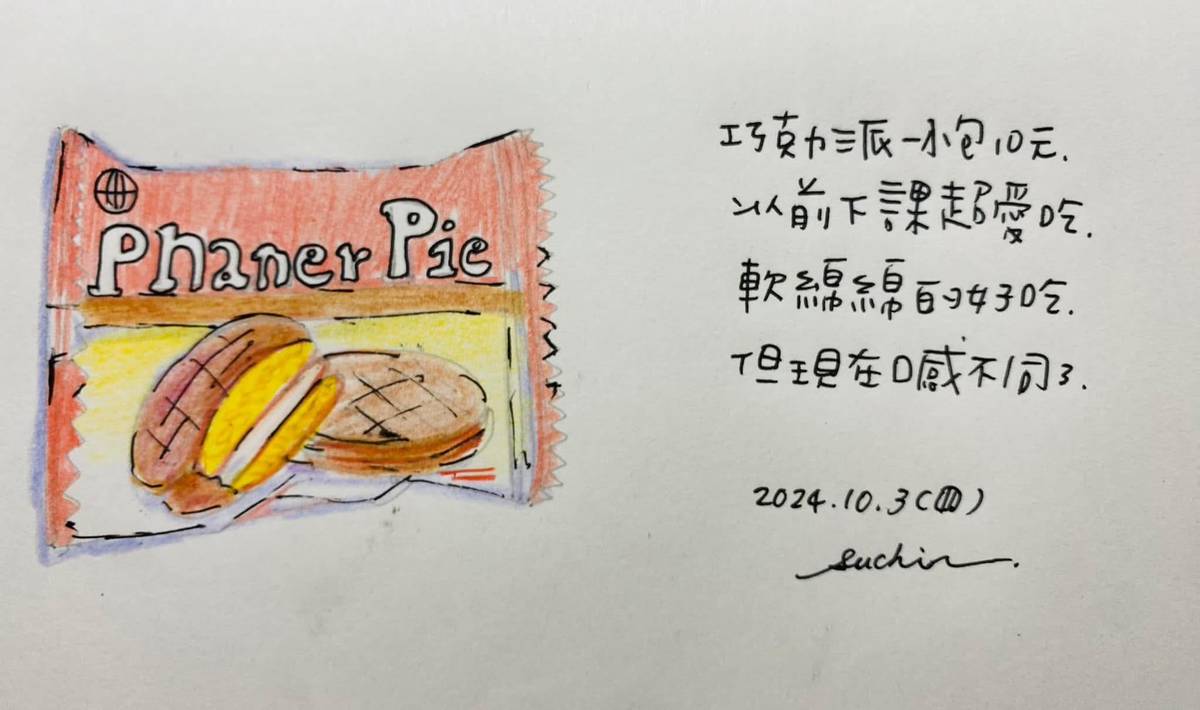 Phaner Pie
巧克力派一小包10元.
以前下課超愛吃.
軟綿綿的好吃.
但現在口感不同了.
2024.10.3(四)
suchin